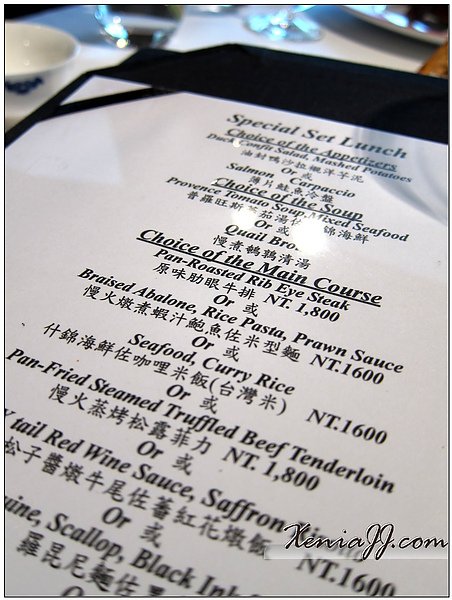 Special Set Lunch
Choice of the Appetizers
Duck Confit Salad, Mashed Potatoes
油封鴨沙拉襯洋芋泥
Or 或
Salmon Carpaccio
薄片鮭魚冷盤
Choice of the Soup
Provence Tomato Soup, Mixed Seafood
普羅旺斯蕃茄湯佐 錦海鮮
Or 或
Quail Bro
慢煮鵪鶉清湯
Choice of the Main Course
Pan-Roasted Rib Eye Steak
原味肋眼牛排 NT. 1,800
Or 或
Braised Abalone, Rice Pasta, Prawn Sauce
慢火燉煮蝦汁鮑魚佐米型麵 NT.1600
Or 或
Seafood, Curry Rice
什錦海鮮佐咖哩米飯(台灣米) NT.1600
Or 或
Pan-Fried Steamed Truffled Beef Tenderloin
慢火蒸烤松露菲力 NT. 1,800
Or 或
tail Red Wine Sauce, Saffron
松子醬燉牛尾佐蕃紅花燉飯 NT.1600
Or 或
uine, Scallop, Black Ink
羅昆尼麵佐
XeniaJJ.com